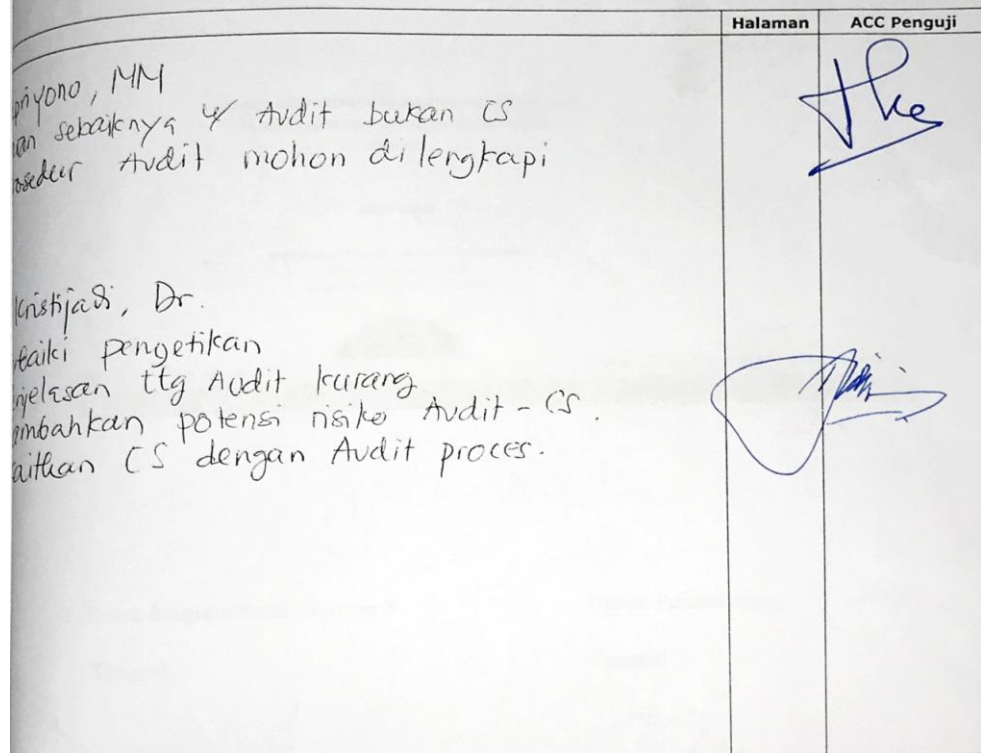 Halaman ACC Penguji
priyono, MM
an sebaiknya u/ Audit bukan CS
osedur Audit mohon dilengkapi
Kristijadi, Dr.
baiki pengetikan
njelasan ttg Audit kurang
ambahkan potensi risiko Audit - CS.
aitkan CS dengan Audit proces.